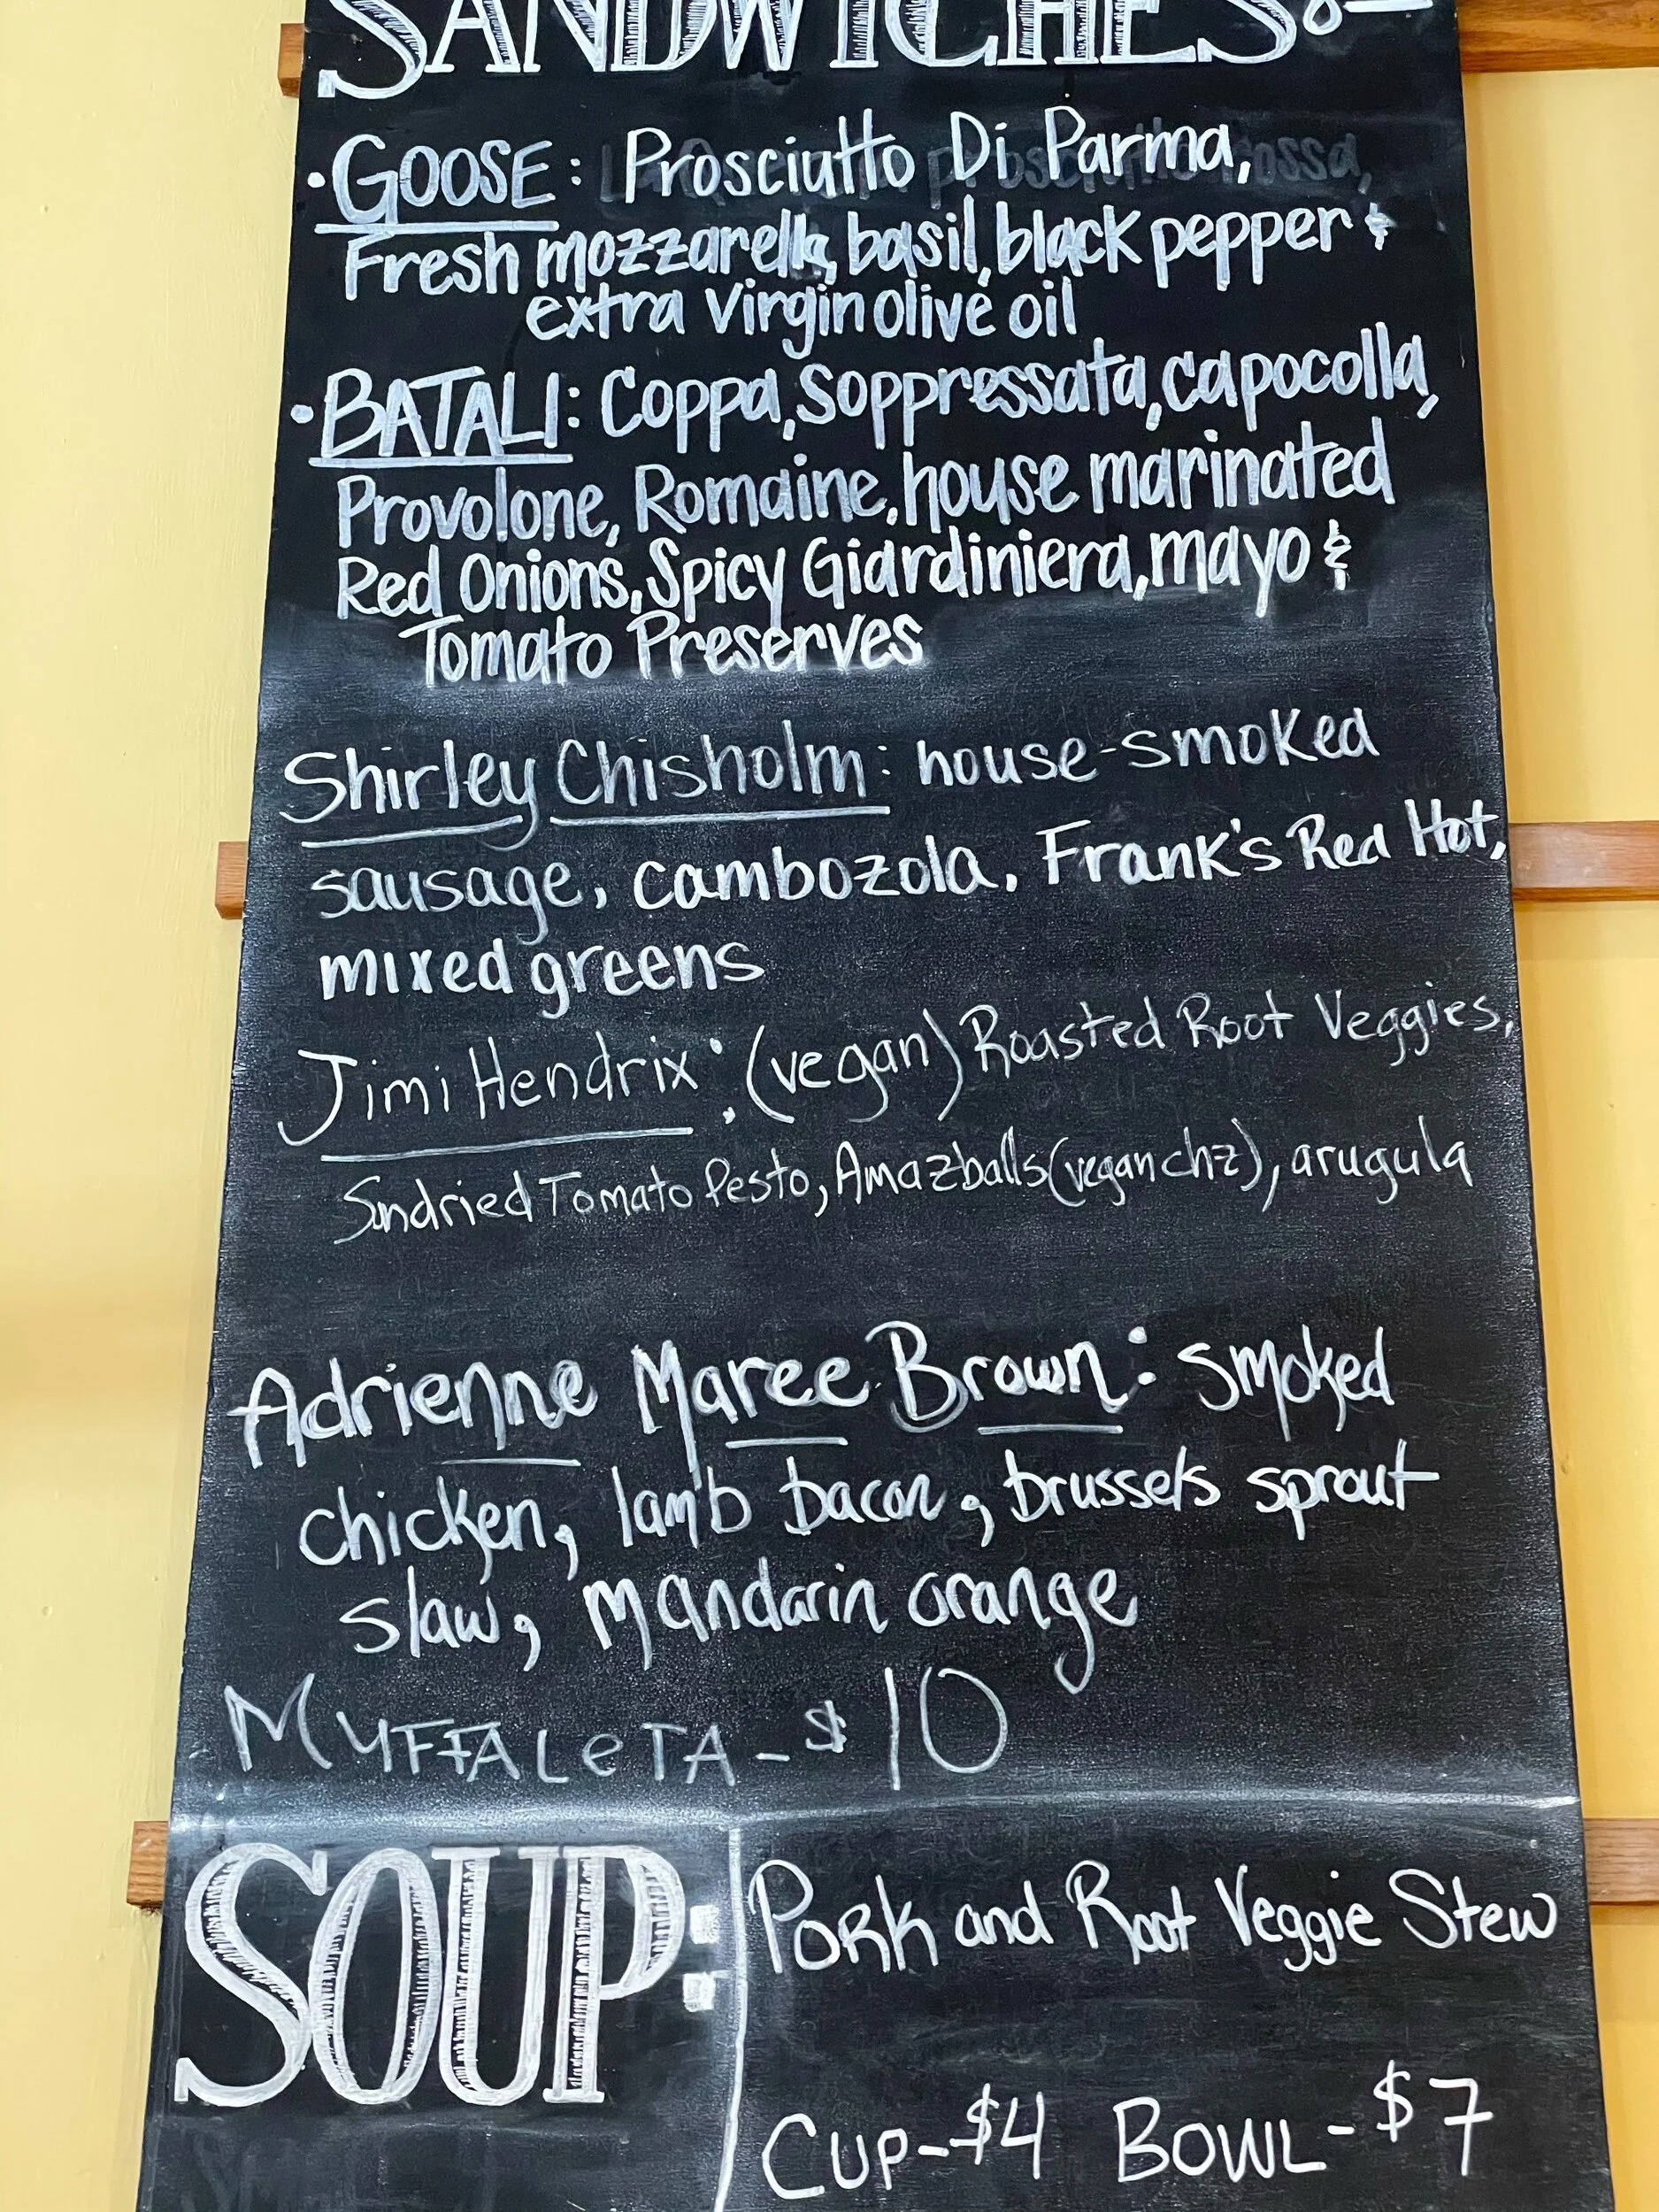 SANDWICHES
• GOOSE: Prosciutto Di Parma,
Fresh mozzarella, basil, black pepper &
extra virgin olive oil
• BATALI: Coppa, Soppressata, capocolla,
Provolone, Romaine, house marinated
Red Onions, Spicy Giardiniera, mayo &
Tomato Preserves
Shirley Chisholm: house-smoked
sausage, cambozola, Frank's Red Hot,
mixed greens
Jimi Hendrix: (vegan) Roasted Root Veggies,
Sundried Tomato Pesto, Amazballs (vegan chz), arugula
Adrienne Maree Brown: smoked
chicken, lamb bacon, brussels sprout
slaw, mandarin orange
MUFFALeTA - $10
SOUP:
Pork and Root Veggie Stew
CUP - $4 BOWL - $7